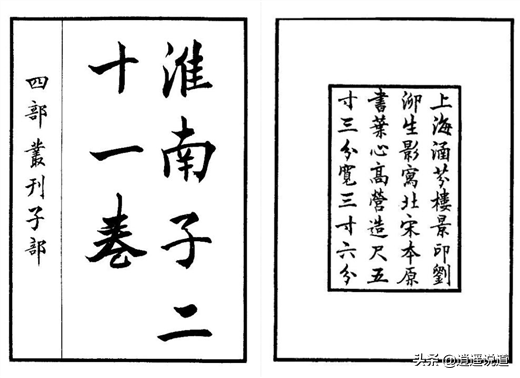 淮南子二
十一卷
四部叢刊子部
上海涵芬樓景印劉
泖生影寫北宋本原
書葉心高營造尺五
寸三分寬三寸六分
头条 @逍遥说道